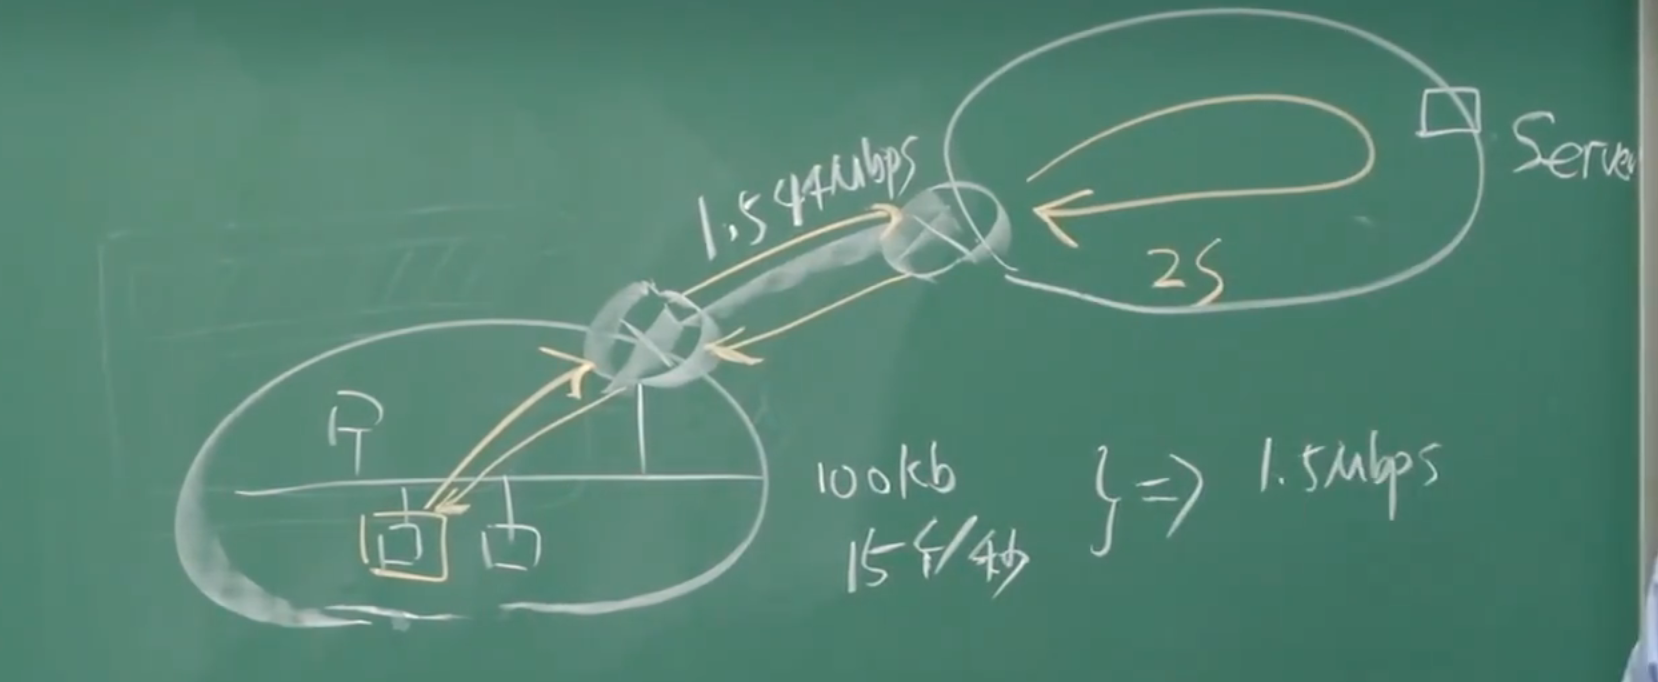 1.544Mbps
Server
2S
100kb
15个/秒
} => 1.5Mbps